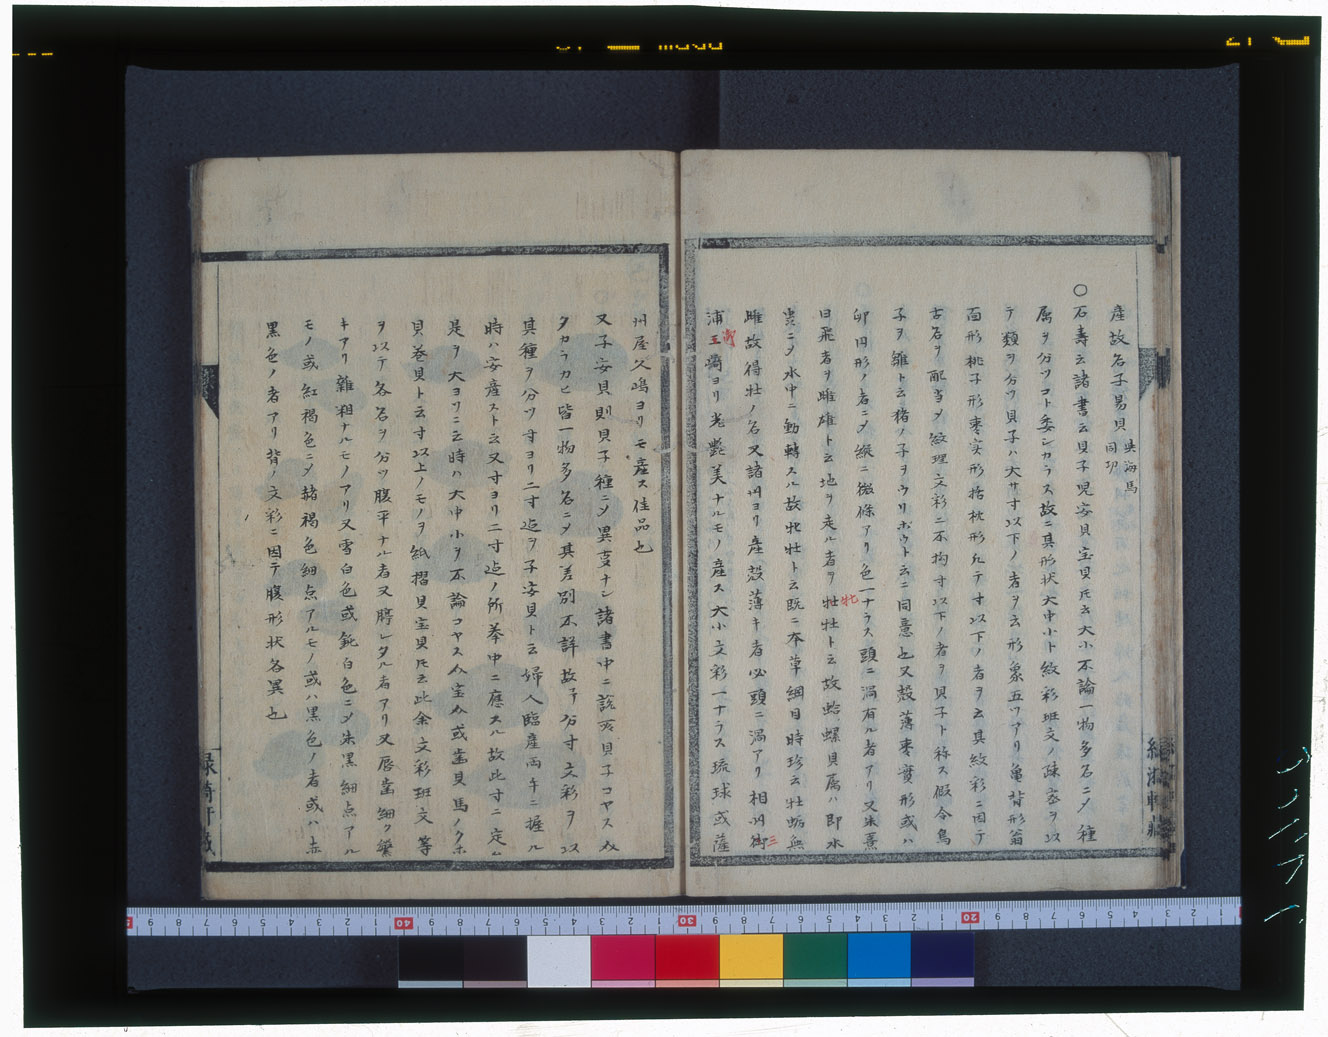 産故名子易貝 呉海馬
同功
〇石壽云諸書云貝子児安貝宝貝氏云大小不論一物多名ニメ種
属ヲ分ツコト委シカラス故ニ其形状大中小ト紋彩班文ノ疎密ヲ以
テ類ヲ分ツ貝子ハ大サ寸以下ノ者ヲ云形象五ツアリ亀背形翁
面形桃子形枣実形括枕形凡テ寸以下ノ者ヲ云其紋彩ニ因テ
古名ヲ配當メ紋理文彩ニ不拘寸以下ノ者ヲ貝子ト称ス假令鳥
子ヲ雛ト云猪ノ子ヲウリボウト云ニ同意也又殻薄枣実形或ハ
卵円形ノ者ニメ縦ニ微條アリ色一ナラス頭ニ渦有ル者アリ又朱熹
曰飛者ヲ雌雄ト云地ヲ走ル者ヲ牡牡ト云故蛤螺貝属ハ即水
牝
虫ニメ水中ニ動轉スル故牝牡ト云既ニ本草綱目時珍云牡蛎無
雌故得牡ノ名又諸州ヨリ産殻薄キ者必頭ニ渦アリ相州御
三
浦王崎ヨリ光艶美ナルモノ産ス大小文彩一ナラス琉球或薩
州屋久嶋ヨリモ産ス佳品也
又子安貝則貝子種ニメ異変ナシ諸書中ニ説貝子コヤス
タカラカヒ皆一物多名ニメ其差別不詳故予分寸文彩ヲ以
其種ヲ分ツ寸ヨリ二寸迠ヲ子安貝ト云婦人臨産両手ニ握ル
時ハ安産スト云又寸ヨリ二寸迠ノ所拳中ニ應スル故此寸ニ定ム
是ヲ大ヨリニ云時ハ大中小ヲ不論コヤス宝或歯貝馬ノクホ
貝巻貝ト云寸以上ノモノヲ紙摺貝宝貝氏云此余文彩班文等
ヲ以テ各名ヲ分ツ腹平ナル者又脝レタル者アリ又唇歯細ク
キアリ雜粗ナルモノアリ又雪白色或鈍白色ニメ朱黒細点アル
モノ或紅褐色ニメ赭褐色細点アルモノ或ハ黒色ノ者或ハ赤
黒色ノ者アリ背ノ文彩ニ因テ腹形状各異也